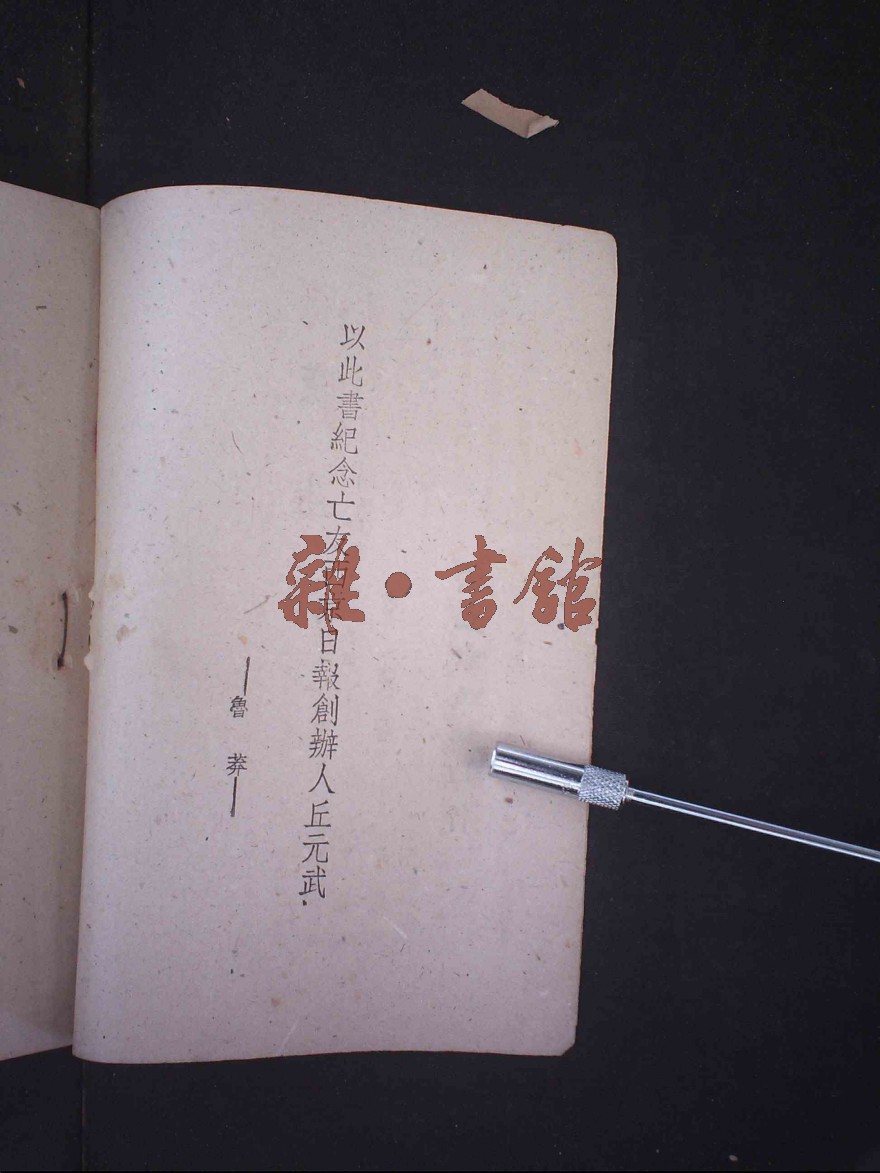 以此書紀念亡友西京日報創辦人丘元武.
——魯莽——
雜·書館